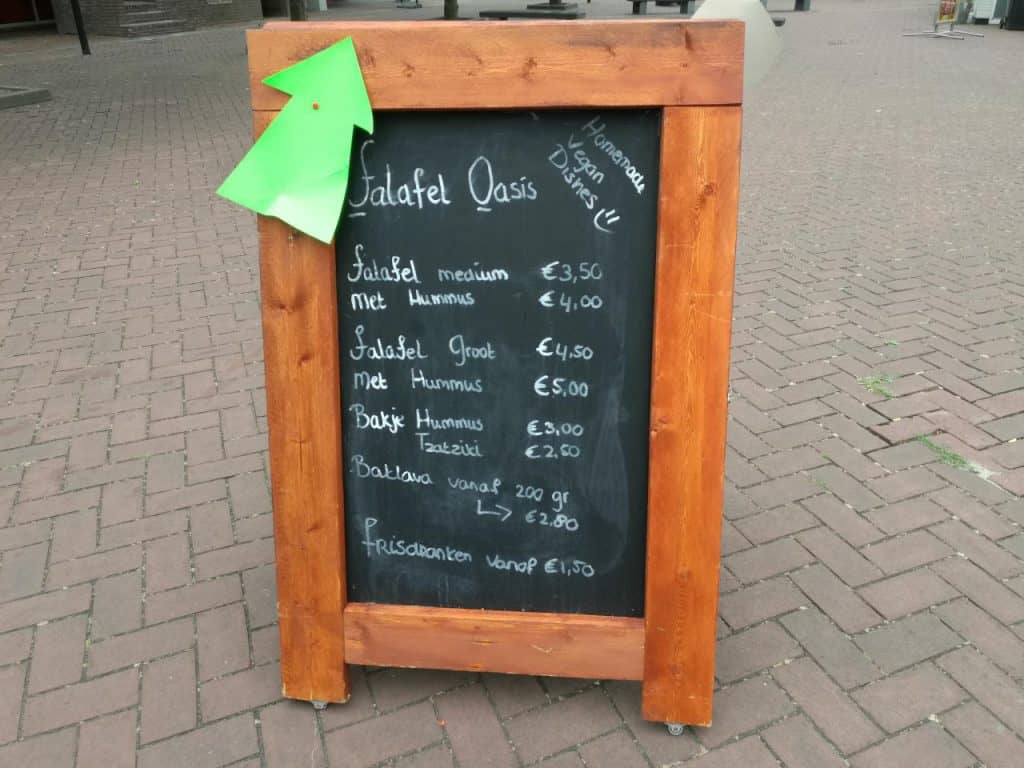 Falafel Oasis
Homemade
Vegan
Dishes
Falafel medium €3,50
Met Hummus €4,00
Falafel Groot €4,50
Met Hummus €5,00
Bakje Hummus €3,00
Tzatziki €2,50
Baklava vanaf 200 gr
€2,80
Frisdranken vanaf €1,50